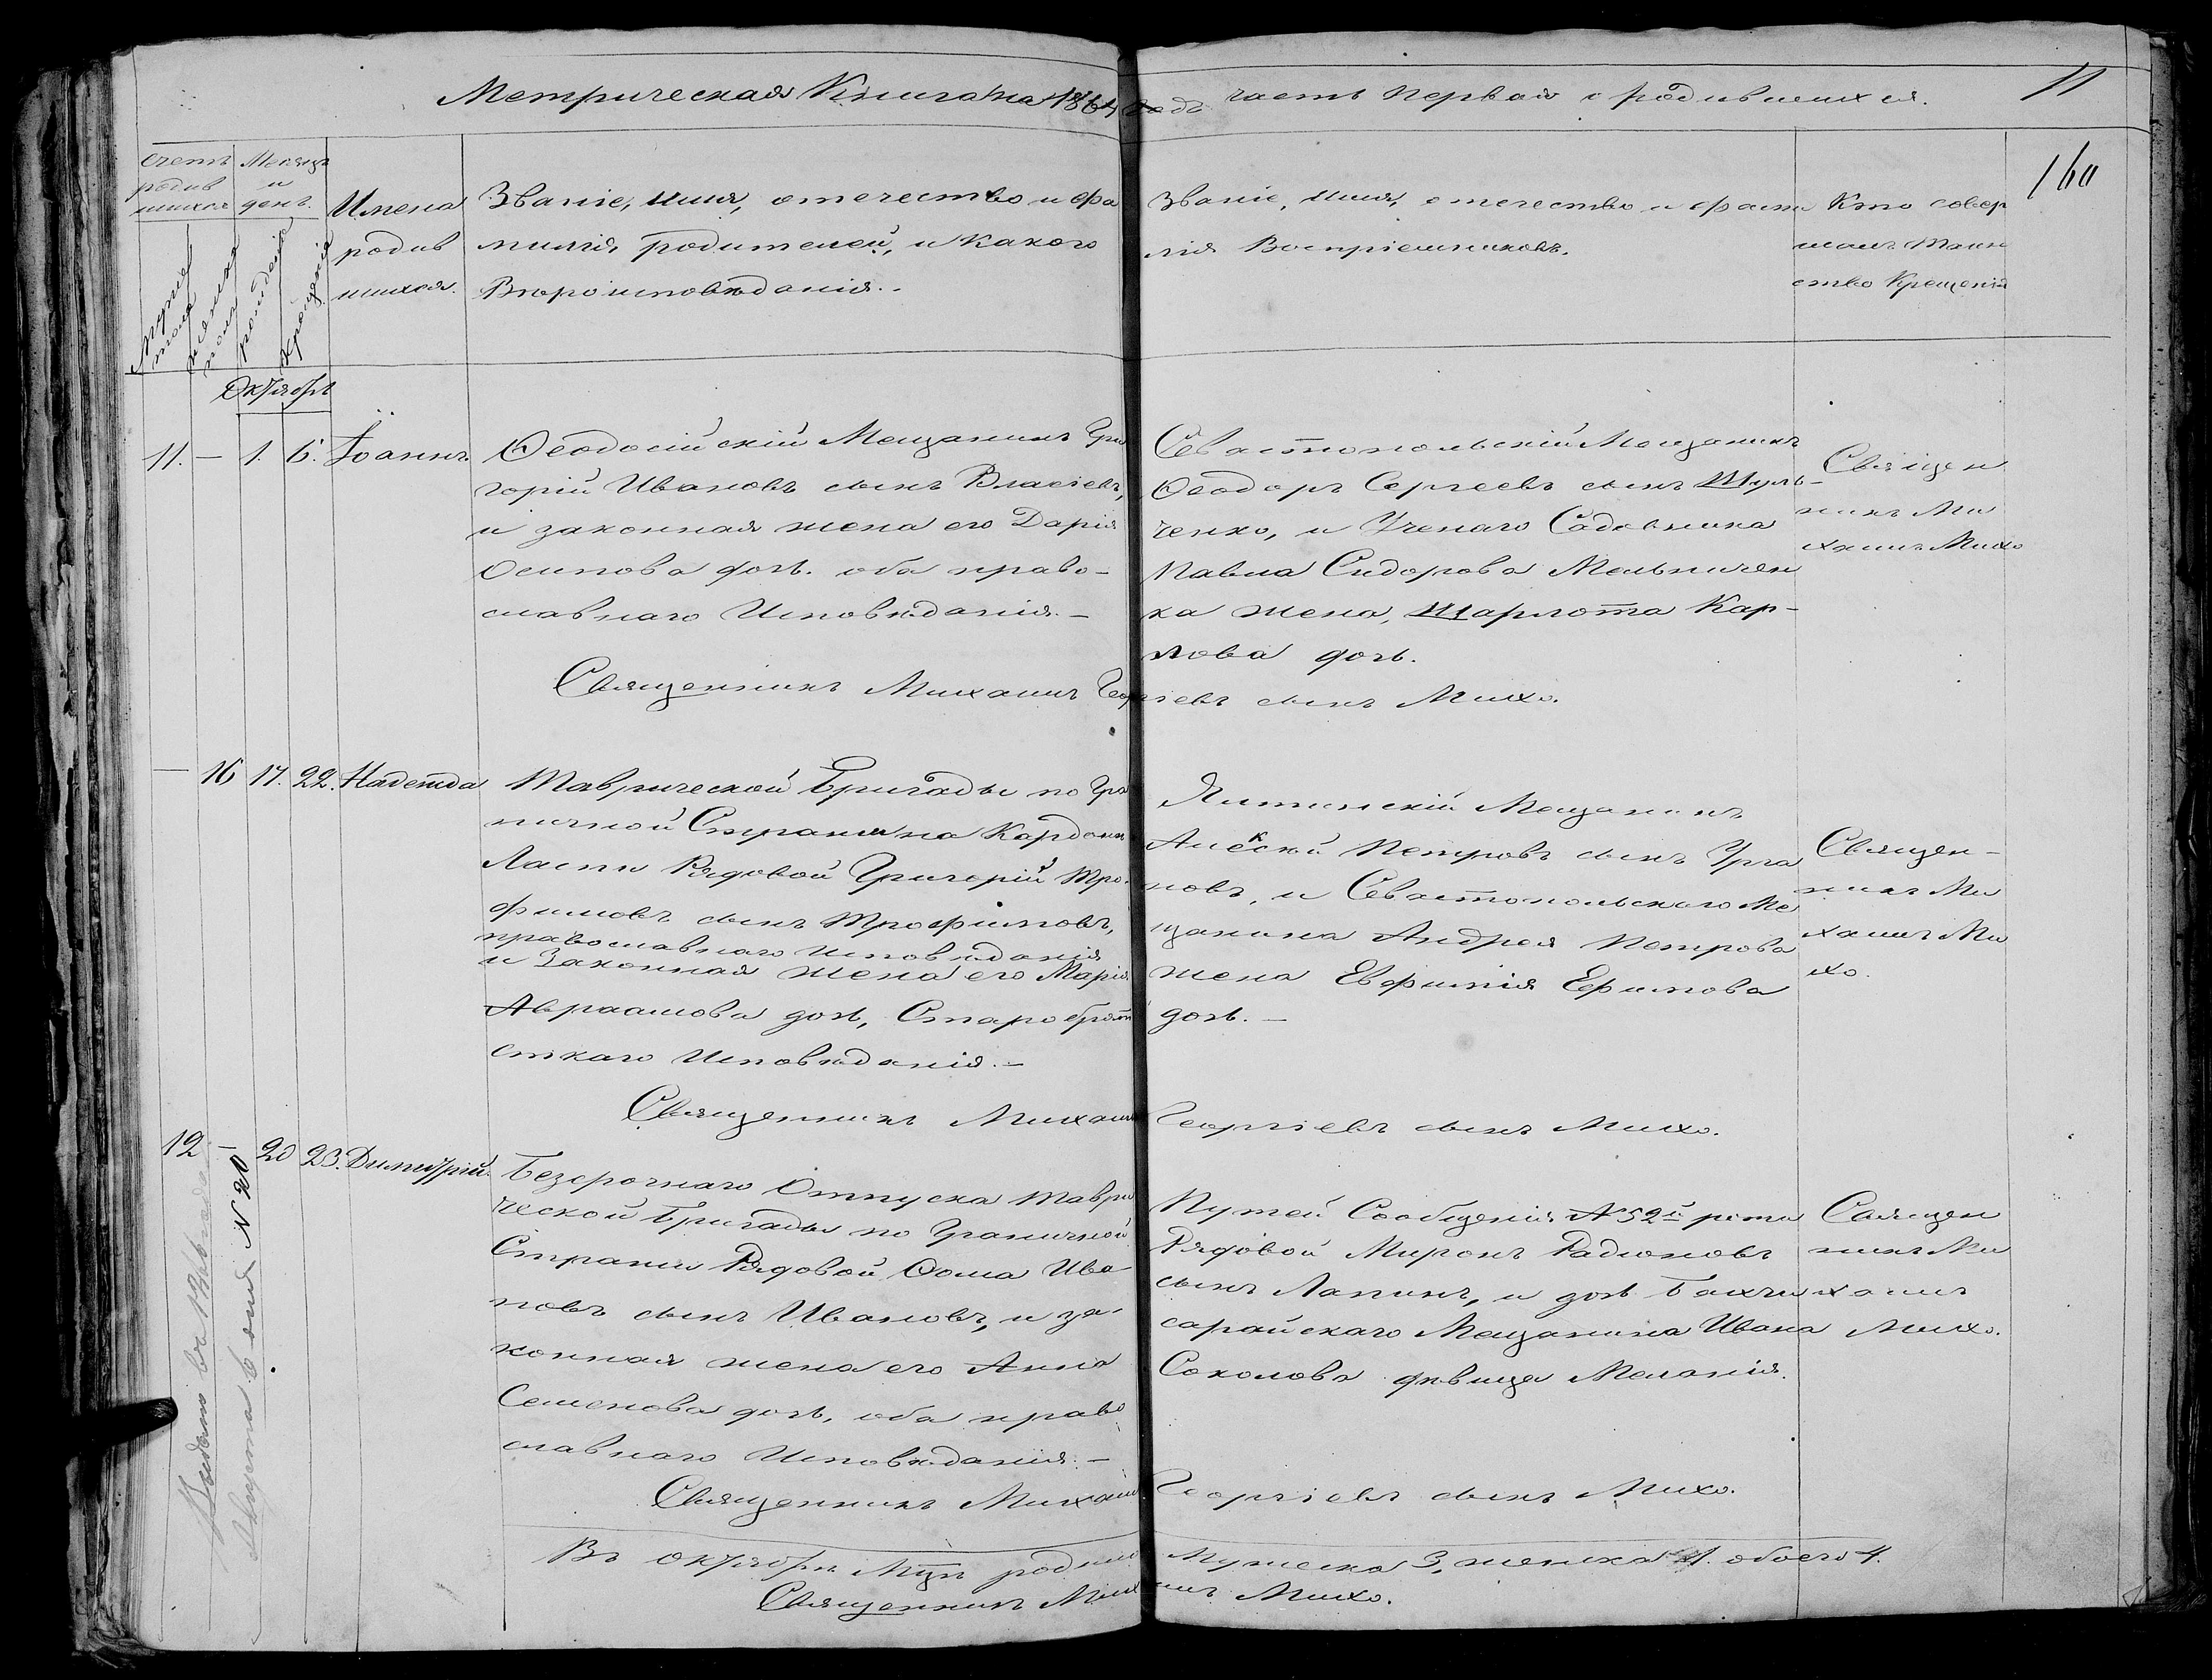 Метрическая Книга на 1864 годъ часть Первая о родившихся.
11
160
счетъ родившихся
Мужеска пола
женска пола
Месяцъ и день.
рожденія
крещенія
Имена
родив
шихся.
Званіе, имя, отечество и фа
милія родителей, и какого
Вѣроисповѣданія.
Званіе, имя, отечество и фами
лія Воспріемниковъ.
Кто совер
шалъ Таин
ство Крещенія
Октябрь
11. — 1. 6. Іоаннъ.
Ѳеодосійскій Мещанинъ Гри
горій Ивановъ сынъ Власіевъ,
и законная жена его Дарія
Осипова дочь. оба право-
славнаго Исповѣданія. —
Севастопольскій Мещанинъ
Ѳеодоръ Сергеевъ сынъ Шуль-
ченко, и Ученаго Садовника
Павла Сидорова Мельничен
ка жена, Шарлота Кар-
лова дочь.
Священ
никъ Ми
хаилъ Михо
Священникъ Михаилъ Георгіевъ сынъ Михо.
— 16 17. 22. Надежда
Таврической Бригады по Гра
ничной Стражи на Кардонѣ
Ласпи Рядовой Григорій Тро-
фимовъ сынъ Трофимовъ,
православнаго исповѣданія
и Законная жена его Марія
Авраамова дочь, Старобрят
сткаго Исповѣданія. —
Ялтинскій Мещанинъ
Алекскій Петровъ сынъ Урга
новъ, и Севастопольскаго Ме
щанина Андрея Петрова
жена Евфимія Ефимова
дочь. —
Священ-
никъ Ми
хаилъ Ми
хо.
Священникъ Михаилъ Георгіевъ сынъ Михо.
12 — 20 23. Димитрій.
Безсрочнаго Отпуска Таври
ческой Бригады по Граничной
Стражи Рядовой Ѳома Ива-
новъ сынъ Ивановъ, и за-
конная жена его Анна
Семенова дочь, оба право
славнаго Исповѣданія. —
Путей Сообщенія № 52й роты
Рядовой Миронъ Радионовъ
сынъ Лапинъ, и дочь Бахчи
сарайскаго Мещанина Ивана
Соколова дѣвица Меланія.
Священ
никъ Ми
хаилъ
Михо.
Священникъ Михаилъ Георгіевъ сынъ Михо.
Августа 6 дня № 20
Въ октябрѣ мцѣ родилось Мужеска 3, женска 1. обоего 4.
Священникъ Михаилъ Михо.